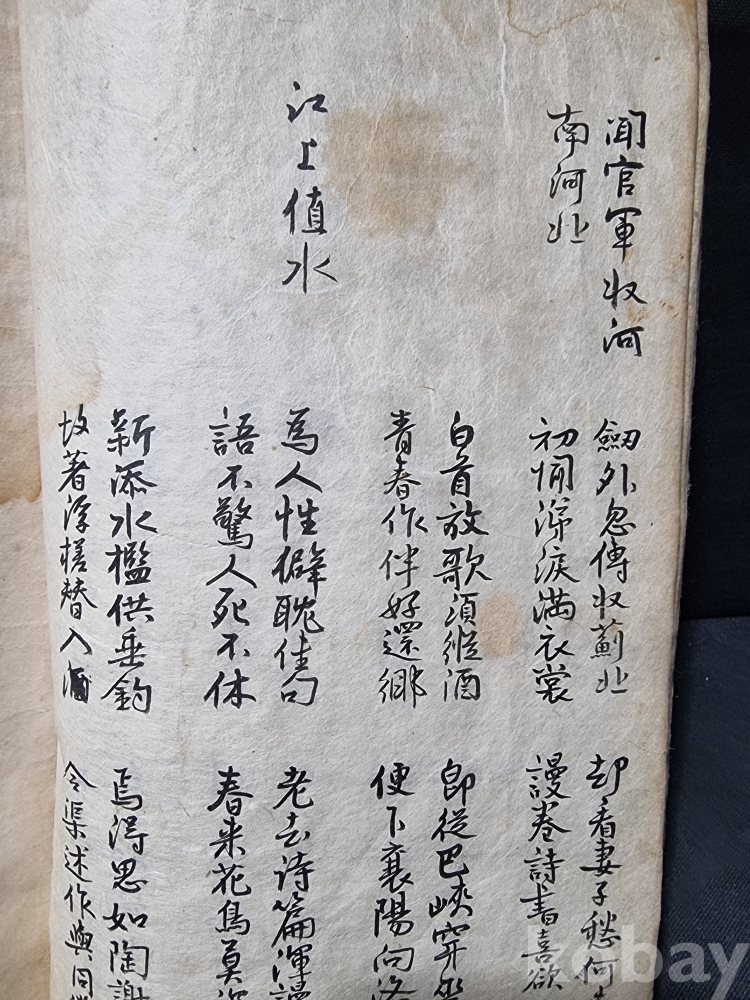 聞官軍収河
南河北
劒外忽傳収薊北
却看妻子愁何
初聞涕淚滿衣裳
謾卷詩書喜欲
白首放歌須縱酒
即從巴峽穿巫
青春作伴好還鄉
便下襄陽向洛
江上值水
為人性僻耽佳句
老去詩篇渾謾
語不驚人死不休
春來花鳥莫深
新添水檻供垂釣
焉得思如陶謝
故著浮槎替入酒
令渠述作與同
kobay